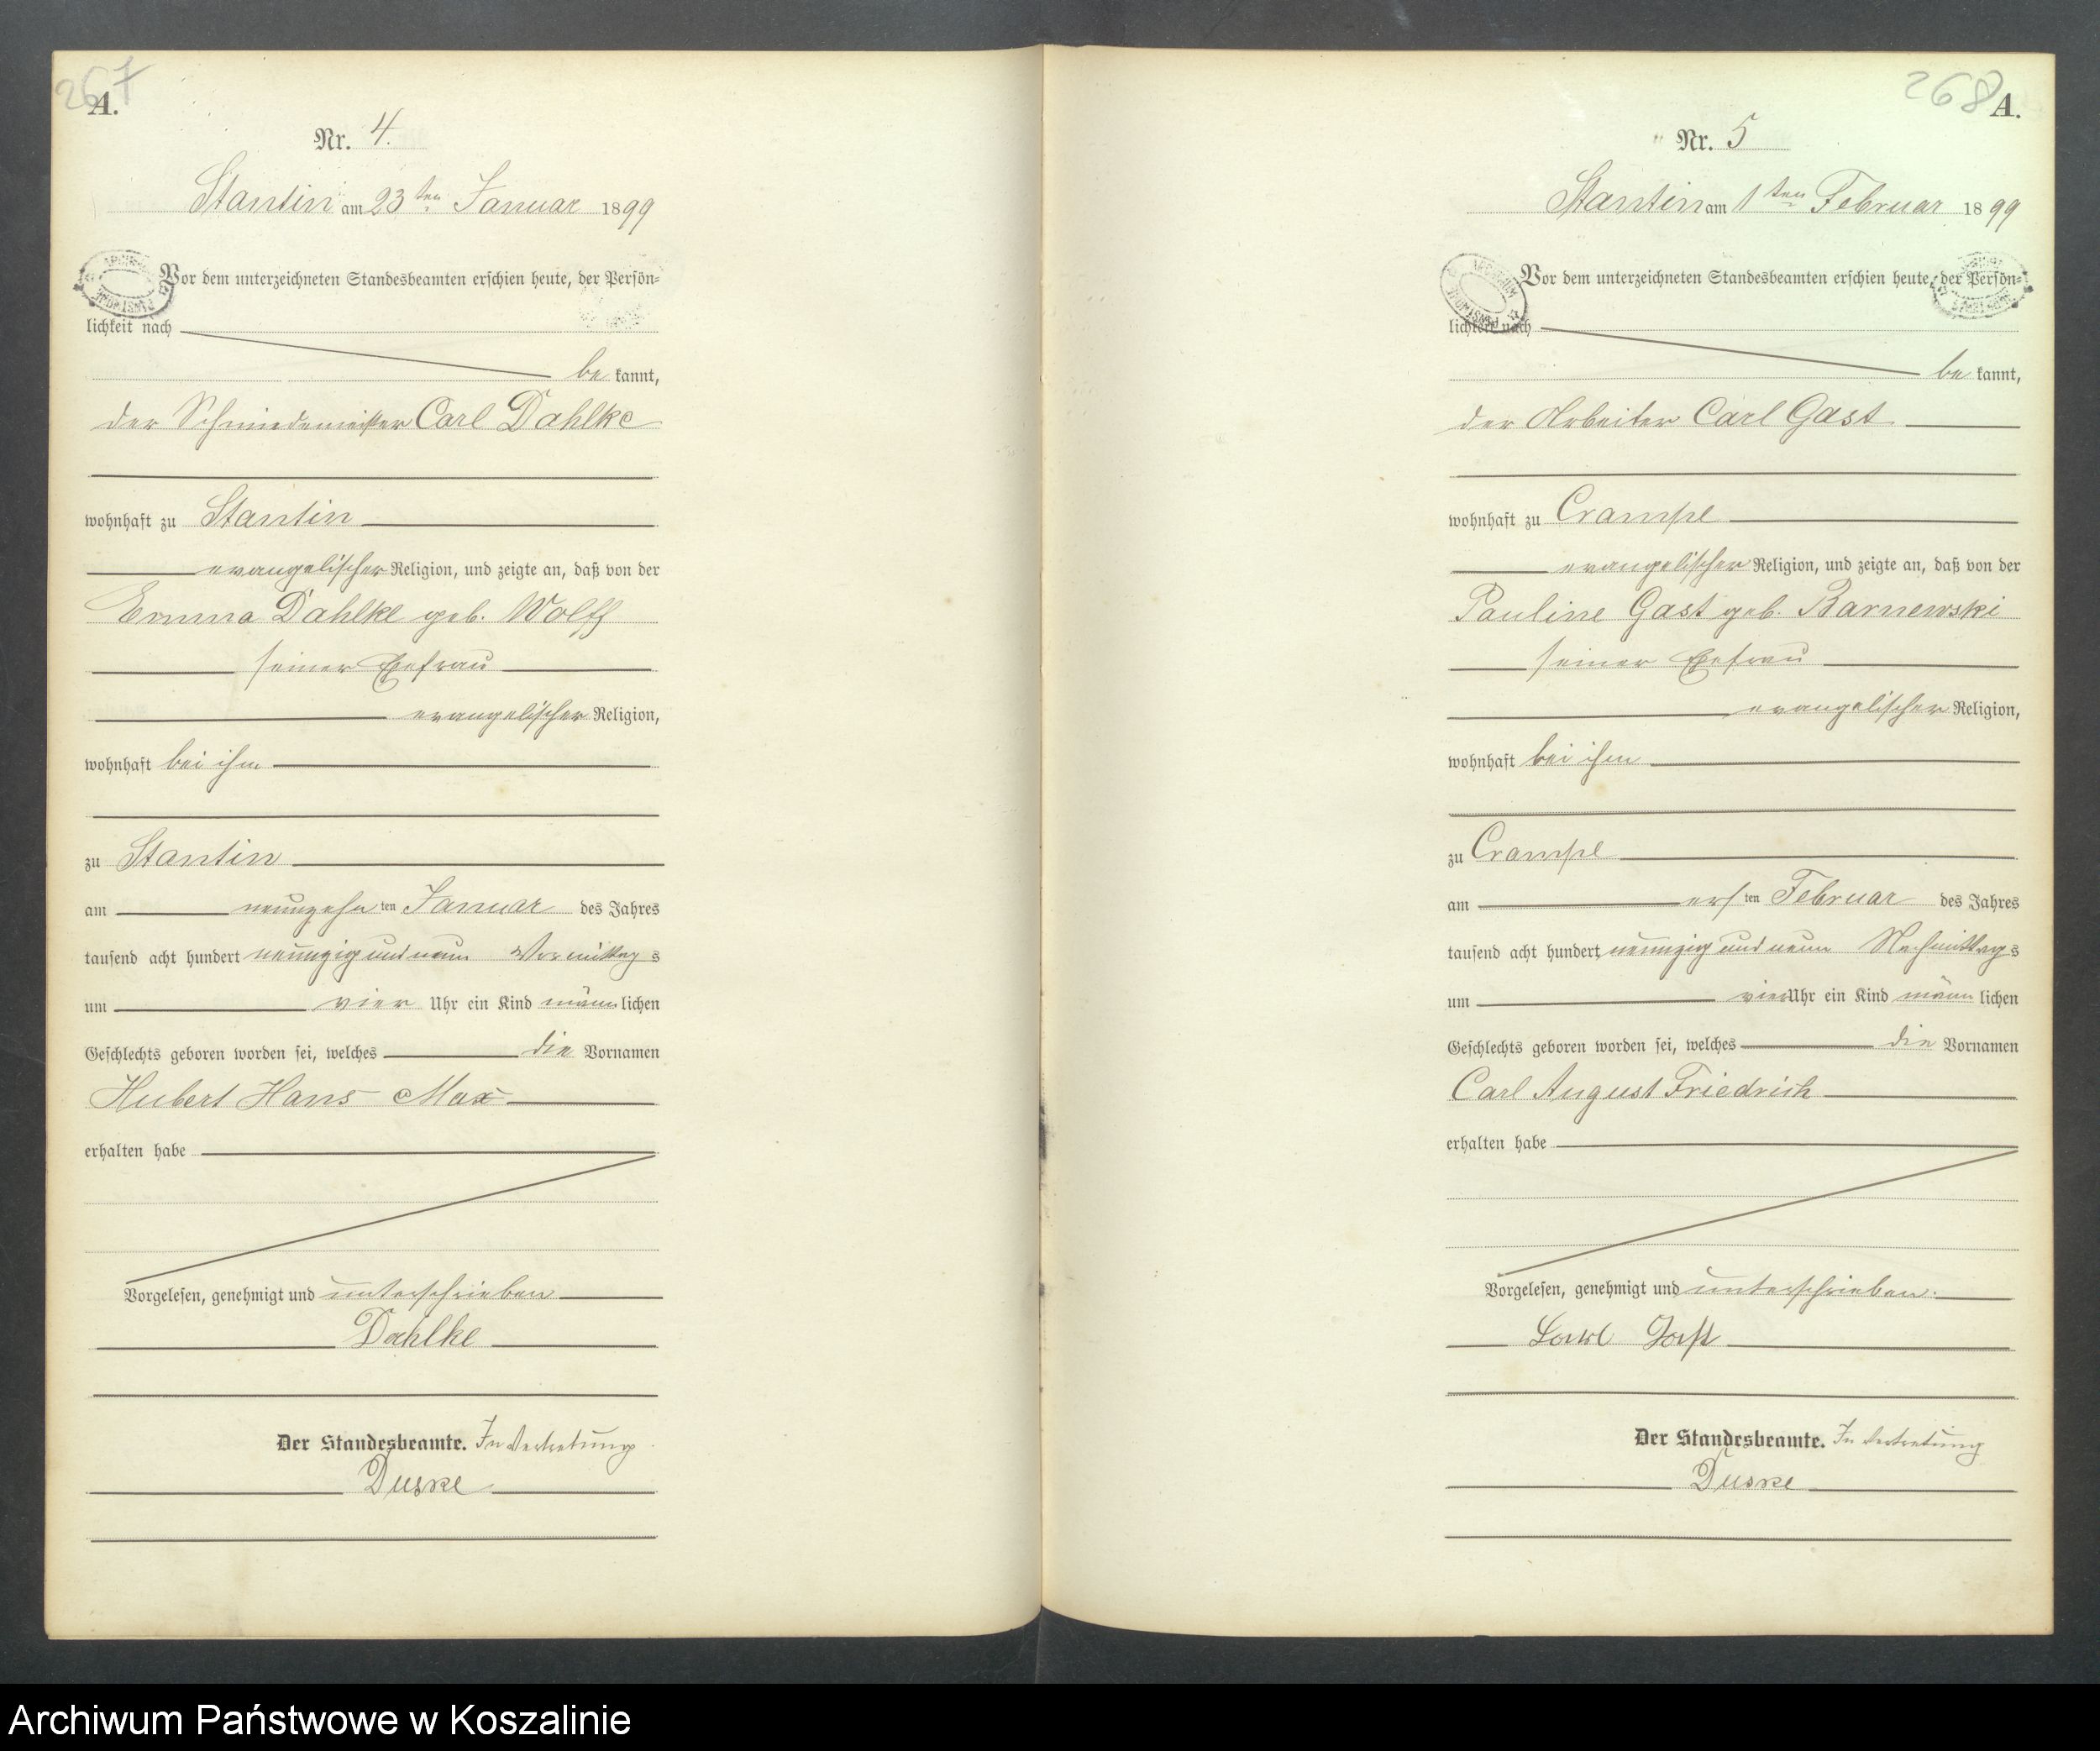 267
A.
Nr. 4.
Stantin am 23ten Januar 1899
Vor dem unterzeichneten Standesbeamten erschien heute, der Persön=
lichkeit nach
be kannt,
der Schmiedemeister Carl Dahlke
wohnhaft zu Stantin
evangelischer Religion, und zeigte an, daß von der
Emma Dahlke geb. Wolff
seiner Ehefrau
evangelischer Religion,
wohnhaft bei ihm
zu Stantin
am neunzehn ten Januar des Jahres
tausend acht hundert neunzig und neun Vormittag s
um vier Uhr ein Kind männ lichen
Geschlechts geboren worden sei, welches die Vornamen
Hubert Hans Max
erhalten habe
Vorgelesen, genehmigt und unterschrieben
Dahlke
Der Standesbeamte. In Vertretung
Duske
268
A.
Nr. 5
Stantin am 1ten Februar 1899
Vor dem unterzeichneten Standesbeamten erschien heute, der Persön=
lichkeit nach
be kannt,
der Arbeiter Carl Gast
wohnhaft zu Crampe
evangelischer Religion, und zeigte an, daß von der
Pauline Gast geb. Barnewski
seiner Ehefrau
evangelischer Religion,
wohnhaft bei ihm
zu Crampe
am ers ten Februar des Jahres
tausend acht hundert neunzig und neun Nachmittag s
um vier Uhr ein Kind männ lichen
Geschlechts geboren worden sei, welches die Vornamen
Carl August Friedrich
erhalten habe
Vorgelesen, genehmigt und unterschrieben.
Carl Gast
Der Standesbeamte. In Vertretung
Duske
Archiwum Państwowe w Koszalinie